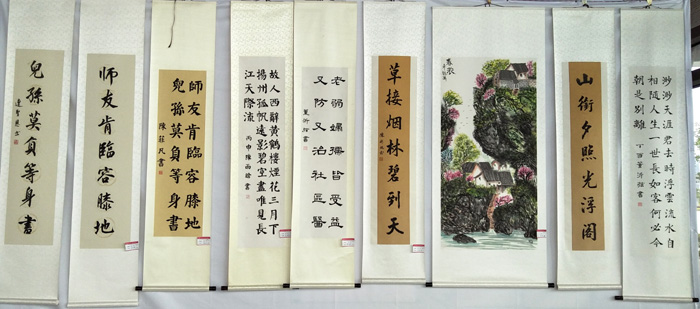 渺渺天涯君去時浮雲流水自
相隨人生一世長如客何必今
朝是別離
丁酉葉濟
書
山銜夕照光浮閣
草接烟林碧到天
老弱孀孺皆受益
又防又治社區醫
書
故人西辭黃鶴樓煙花三月下
揚州孤帆遠影碧空盡唯見長
江天際流
丙申陳
書
師友肯臨容膝地
兒孫莫負等身書
陳莊民書
師友肯臨容膝地
兒孫莫負等身書